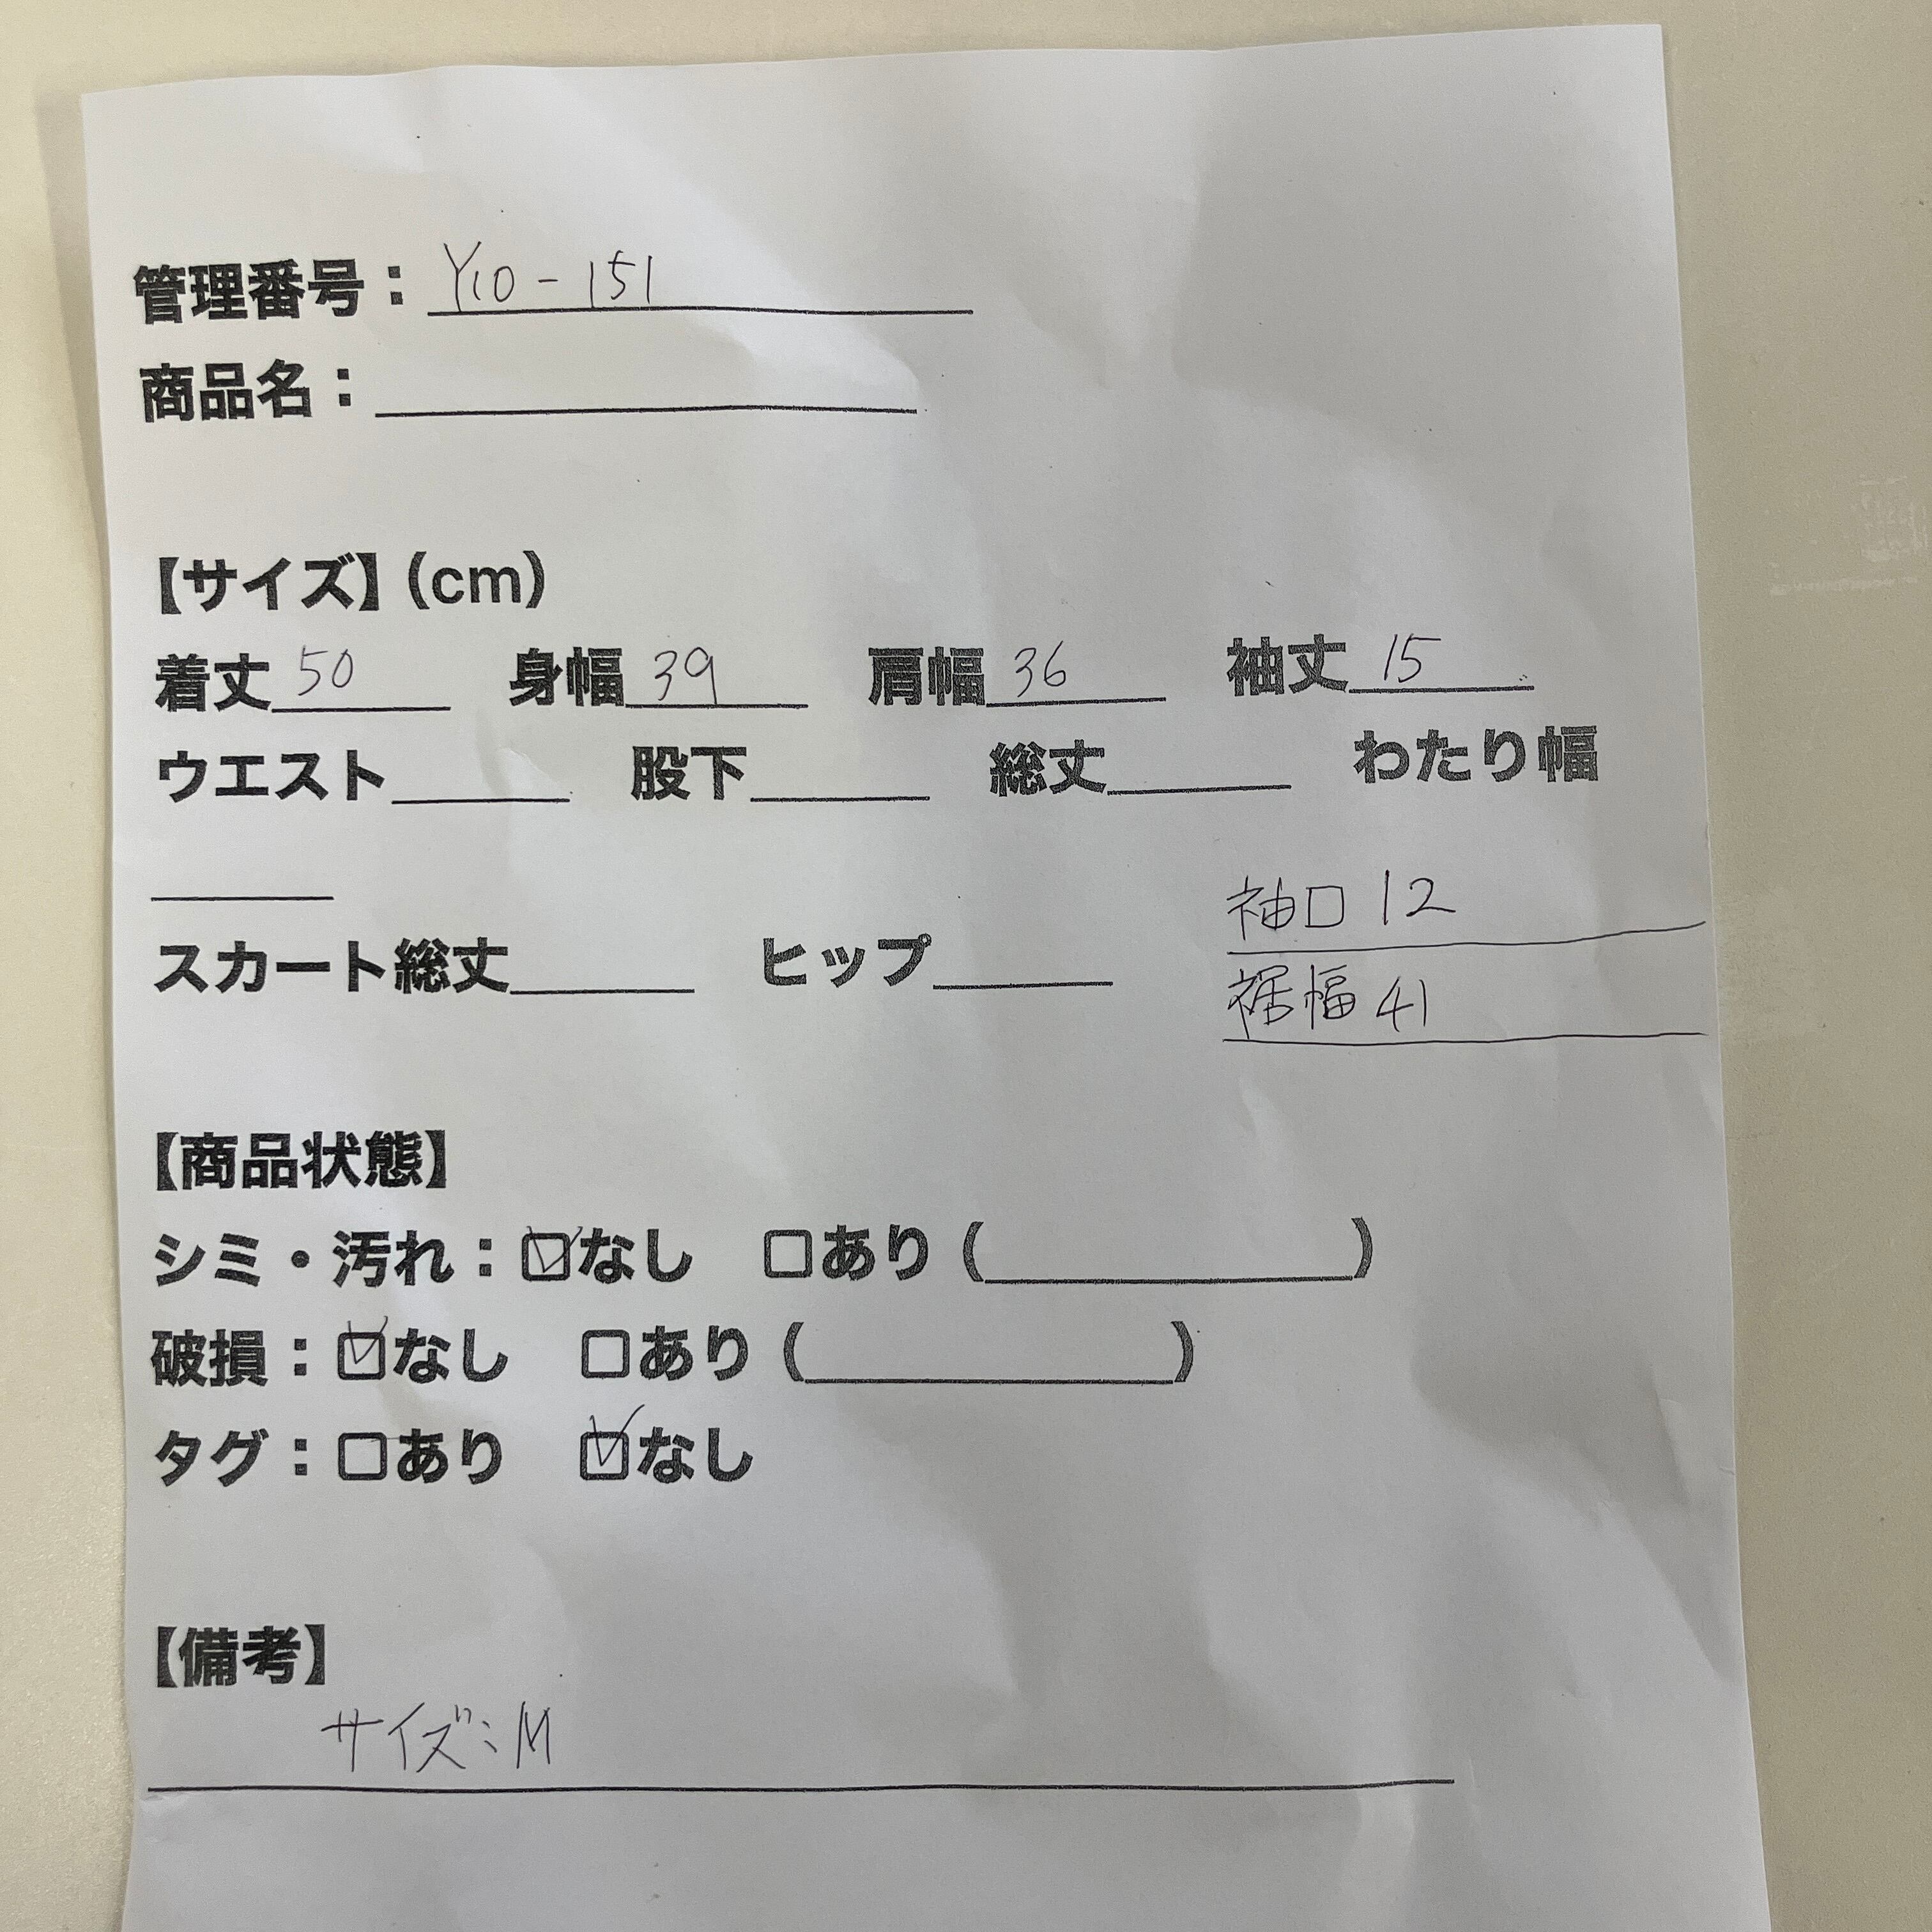 管理番号：Y10-151
商品名：
【サイズ】(cm)
着丈 50 身幅 39 肩幅 36 袖丈 15
ウエスト 股下 総丈 わたり幅
袖口 12
スカート総丈 ヒップ
裾幅 41
【商品状態】
シミ・汚れ：☑なし □あり（ ）
破損：☑なし □あり（ ）
タグ：□あり ☑なし
【備考】
サイズ：M